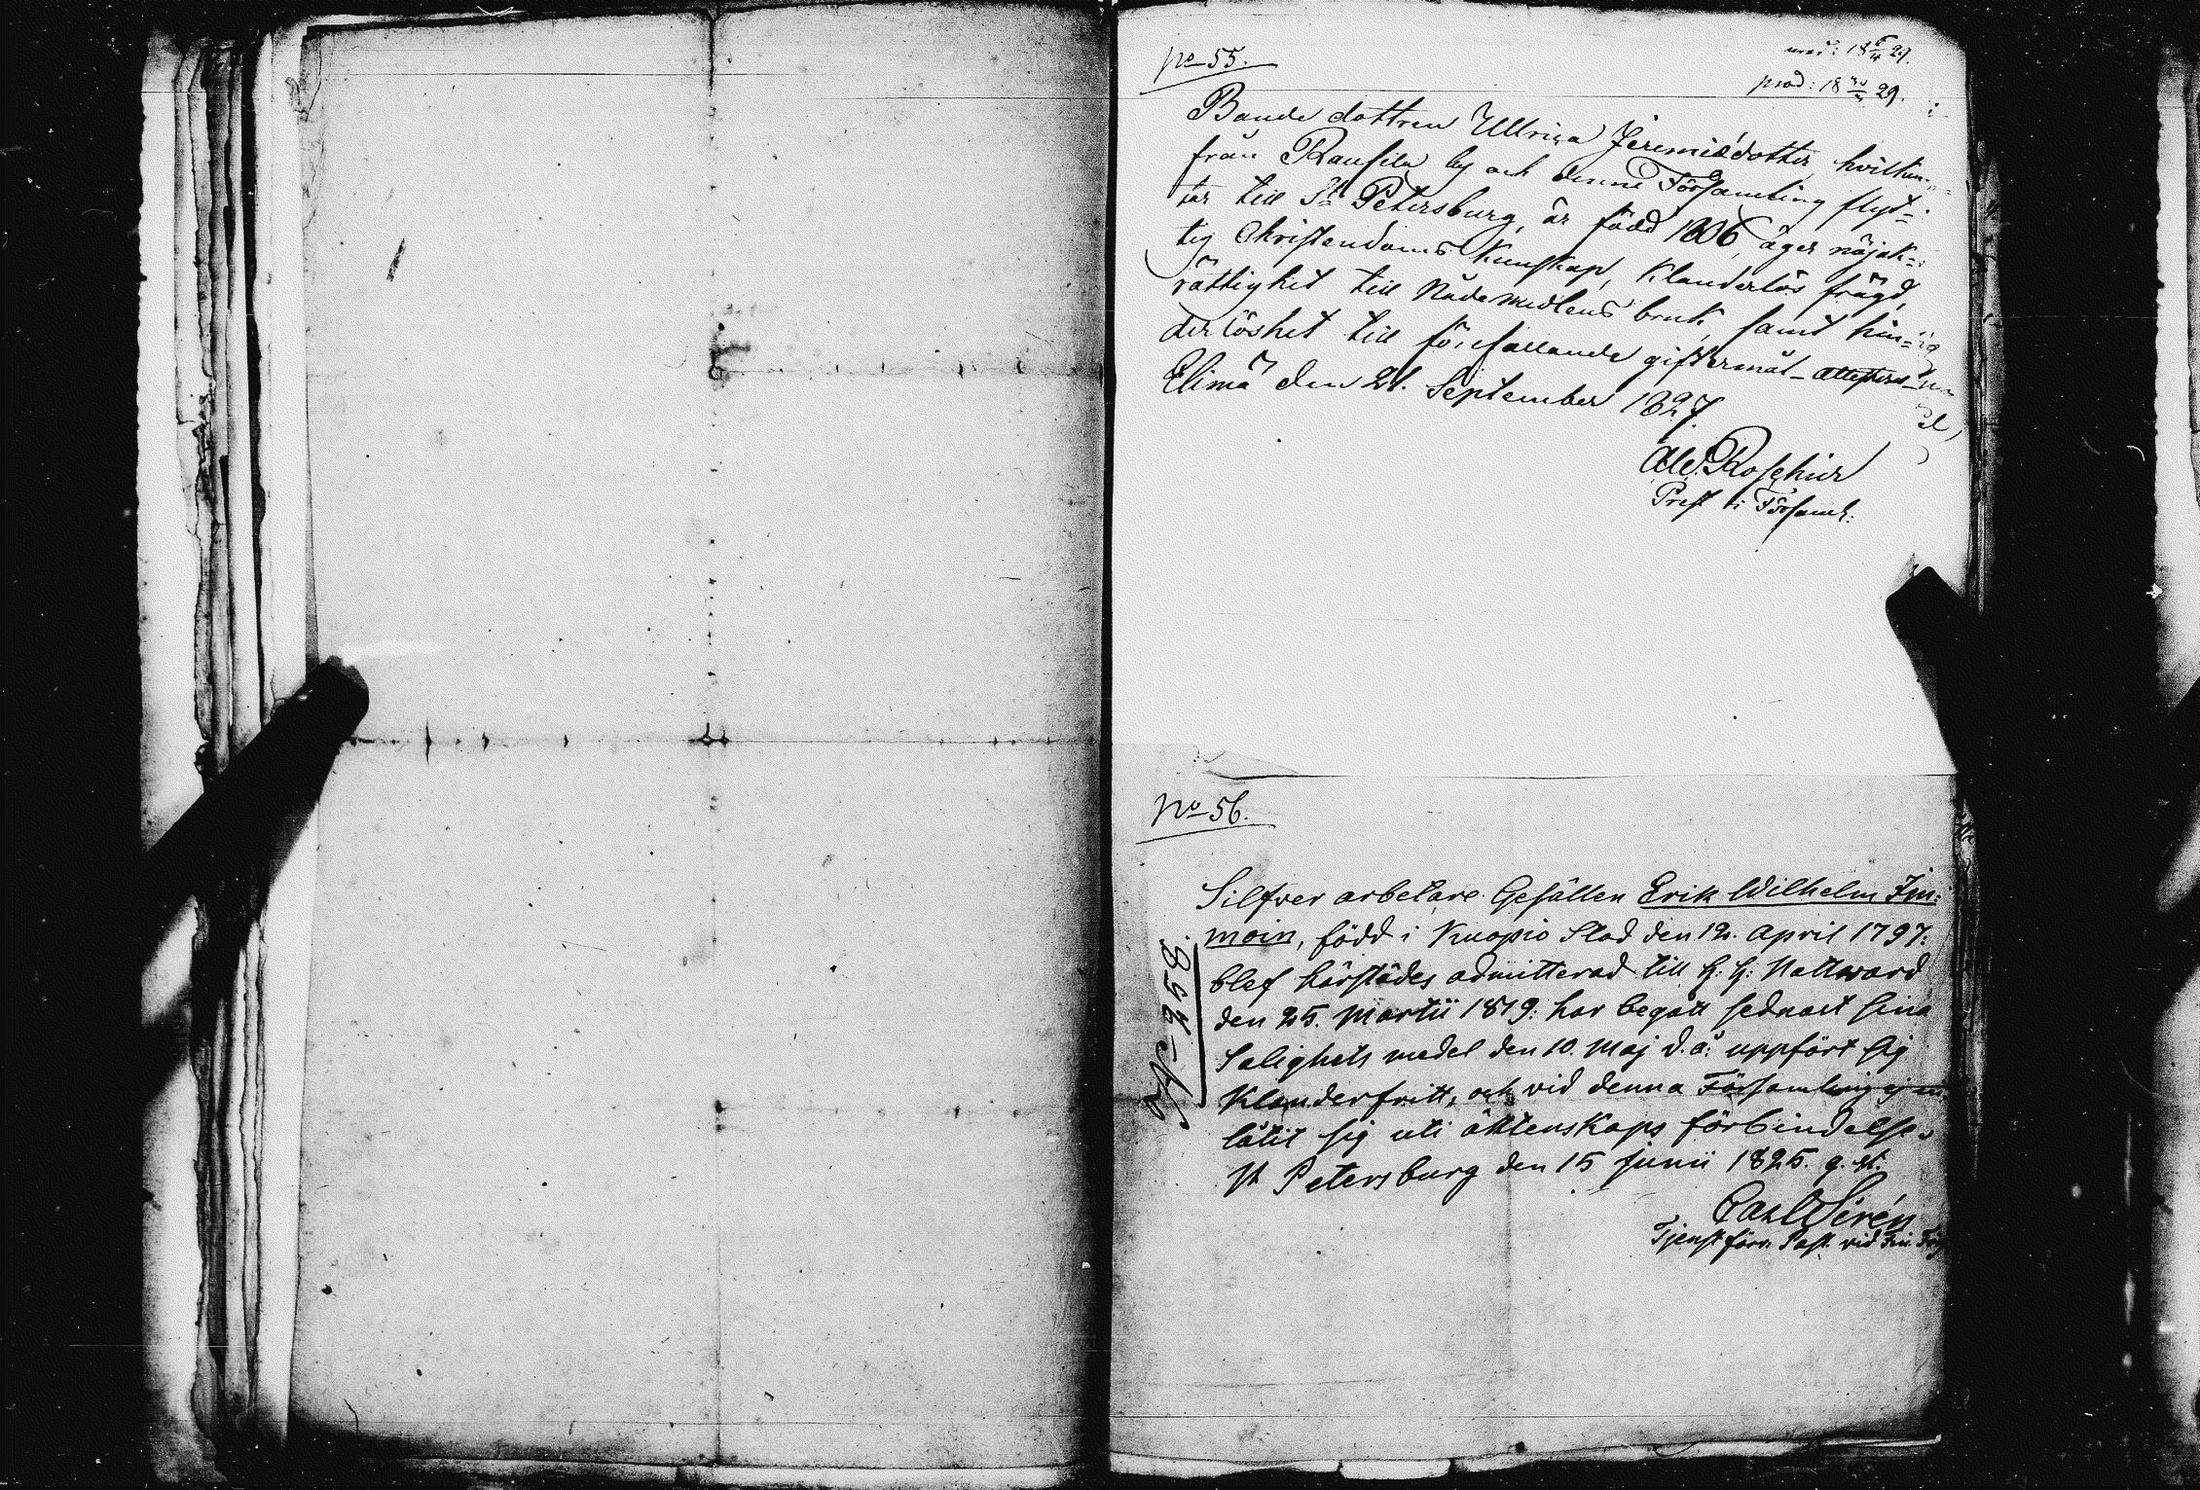 No 55.
prod: 18 29.
Bonde dottren Ullrica Jeremiædotter, hvilken
från Raussila by och denne Församling flyt-
tar till St Petersburg, är född 1806, äger nöjak-
tig Christendoms Kunskap, Klanderlös frägd,
rättighet till Nådemedlens bruk, samt hin-
derlöshet till förefallande giftermål - attesteras
Elimä den 21. September 1827.
Prest i Församl:
No 56.
No 258.
Silfver arbetare Gesällen Erik Wilhelm Im-
moin, född i Kuopio Stad den 12. April 1797:
blef härstädes admitterad till H: H: Nattward
den 25. Martii 1819: har begått sednast sina
Salighets medel den 10. Maj d. å: uppfört sig
Klanderfritt, och vid denna Församling ej in
låtit sig uti äktenskaps förbindelse.
St Petersburg den 15 Junii 1825. g. st.
Carl Sirén
Tjenstförr. Past. vid Fin. För